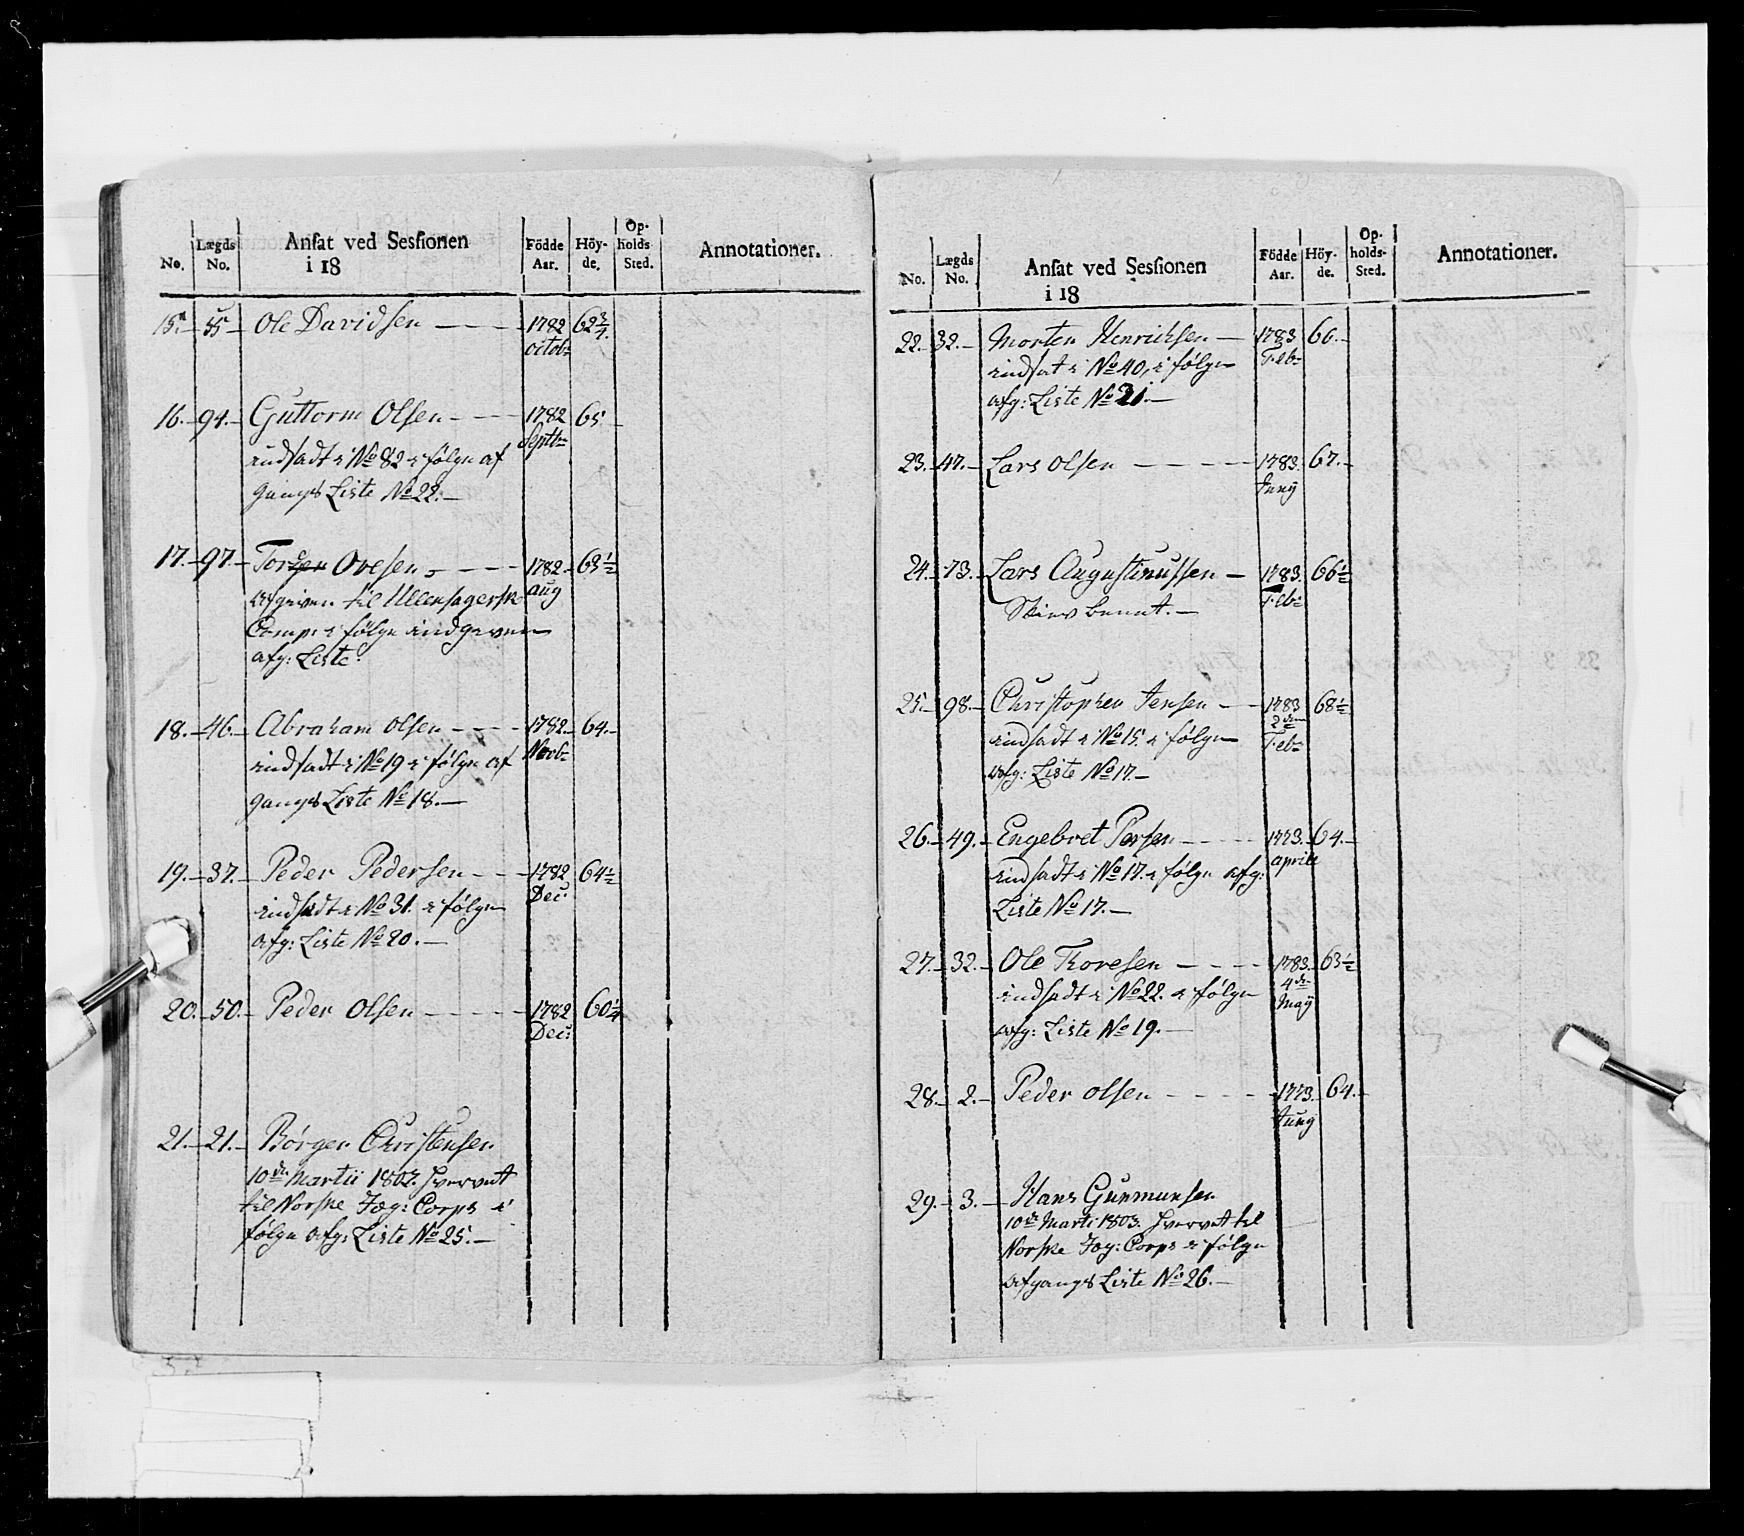 No. Lægds No. Ansat ved Sessionen i 18 Födde Aar. Höyde. Opholds Sted. Annotationer.
15. 55 Ole Davidsen 1782 62 3/4
octobr
16. 94. Guttorm Olsen 1782 65
Septbr
indsadt i No 82 i følge af
gangs Liste No 22.
17. 97. Ovesen 1782 63 1/2
aug
afgiven til Ullensagerske
Comp: i følge indgiven
afg: Liste
18. 46. Abraham Olsen 1782. 64.
Novbr
indsadt i No 19 i følge af
gangs Liste No 18.
19. 37. Peder Pedersen 1782 64 1/2
Dec:
indsadt i No 31. i følge
afg: Liste No 20.
20. 50. Peder Olsen 1782 60 1/4
Dec:
21. 21. Børger Christensen
10de Martii 1802. hvervet
til Norske Jæg: Corps i
følge afg: Liste No 25.
No. Lægds No. Ansat ved Sessionen i 18 Födde Aar. Höyde. Opholds-Sted. Annotationer.
22. 32. Morten Henrichsen 1783 66.
Febr
indsat i No 40, i følge
afg: Liste No 21.
23. 47. Lars Olsen 1783. 67.
Juny
24. 73. Lars Augustinussen 1783. 66 1/2
Febr
25. 98. Christopher Jensen 1783 68 1/2
2den
Febr
indsadt i No 15. i følge
afg: Liste No 17.
26. 49. Engebret Persen 1773. 64.
aprill
indsadt i No 17. i følge afg:
Liste No 17.
27. 32. Ole Toresen 1783. 63 1/2
4de
May
indsadt i No 22. i følge
afg: Liste No 19.
28. 2. Peder Olsen 1773. 64.
Juny
29. 3. Hans Gunmunsen
10de Marti 1803. hvervet til
Norske Jæg: Corps i følge
afgangs Liste No 26.